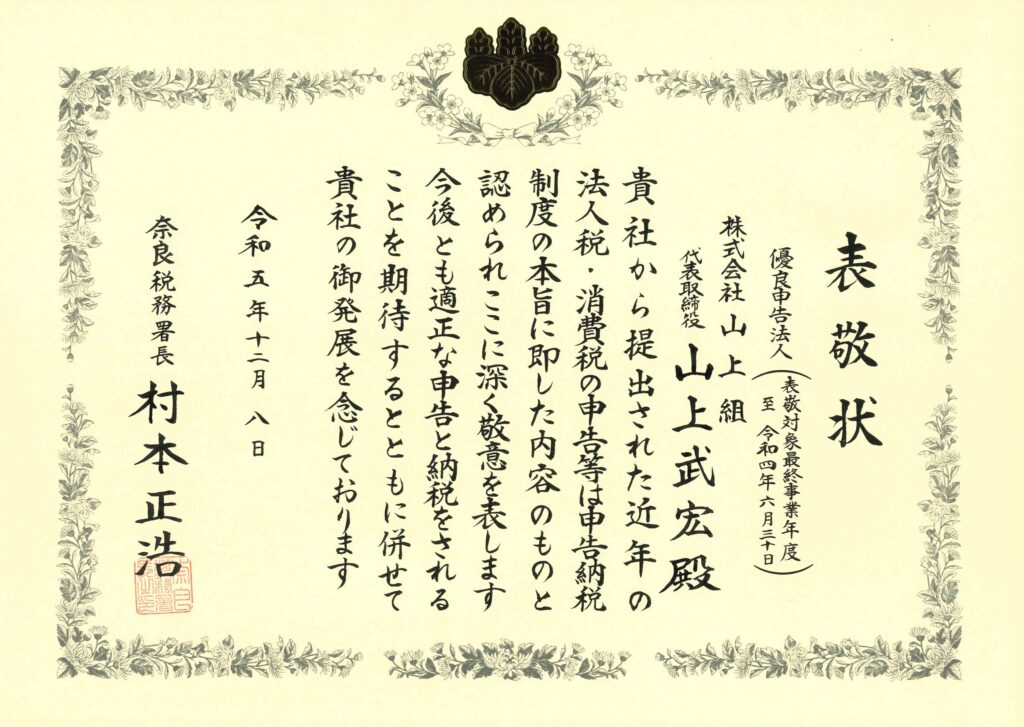 表敬状
優良申告法人
（表敬対象最終事業年度
至 令和四年六月三十日）
株式会社 山上組
代表取締役 山上武宏殿
貴社から提出された近年の
法人税・消費税の申告等は申告納税
制度の本旨に即した内容のものと
認められここに深く敬意を表します
今後とも適正な申告と納税をされる
ことを期待するとともに併せて
貴社の御発展を念じております
令和五年十二月八日
奈良税務署長 村本正浩